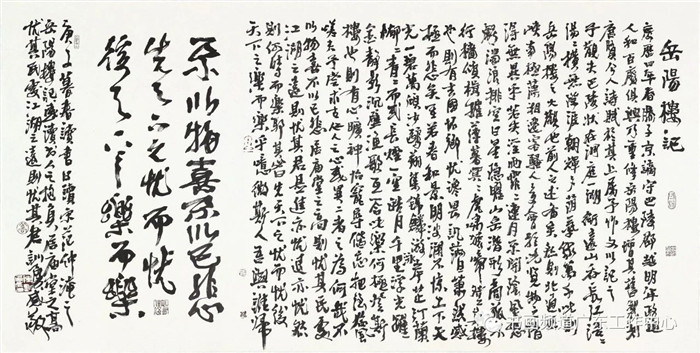 岳陽樓記
慶曆四年春滕子京謫守巴陵郡越明年政通
人和百廢俱興乃重修岳陽樓增其舊制刻
唐賢今人詩賦於其上屬予作文以記之
予觀夫巴陵勝狀在洞庭一湖銜遠山吞長江浩浩
湯湯橫無際涯朝暉夕陰氣象萬千此則
岳陽樓之大觀也前人之述備矣然則北通巫
峽南極瀟湘遷客騷人多會於此覽物之情
得無異乎若夫淫雨霏霏連月不開陰風怒
號濁浪排空日星隱曜山岳潛形商旅不
行檣傾楫摧薄暮冥冥虎嘯猿啼登斯樓
也則有去國懷鄉憂讒畏譏滿目蕭然感
極而悲者矣至若春和景明波瀾不驚上下天
光一碧萬頃沙鷗翔集錦鱗游泳岸芷汀蘭
郁郁青青而或長煙一空皓月千里浮光躍
金靜影沉璧漁歌互答此樂何極登斯
樓也則有心曠神怡寵辱偕忘把酒臨風
嗟夫予嘗求古仁人之心或異二者之為何哉不
以物喜不以己悲居廟堂之高則憂其民處
江湖之遠則憂其君是進亦憂退亦憂然
則何時而樂耶其必曰先天下之憂而憂後
天下之樂而樂乎噫微斯人吾誰與歸
不以物喜不以己悲
先天下之憂而憂
後天下之樂而樂
庚子暮春讀書日讀宋范仲淹之
岳陽樓記感讀為人之抱負居廟堂之高
憂其民處江湖之遠則憂其君
书画频道广东工作中心